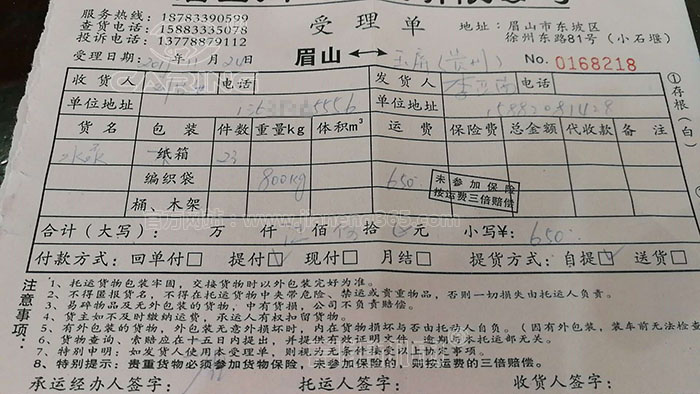 服务热线：18783390599
查货电话：15883335078
投诉电话：13778879112
受理单
地址：眉山市东坡区
徐州东路81号（小石堰）
受理日期：
年 月 日
眉山
No. 0168218
收货人 电话 发货人 电话
单位地址 单位地址 15882081428
货名 包装 件数 重量kg 体积m³ 运费 保险费 总金额 代收款 备注
纸箱 23
编织袋 800kg 650
未参加保险
按运费三倍赔偿
桶、木架
合计（大写）： 万 仟 佰 拾 元 小写¥： 650
付款方式：回单付□ 提付□ 现付□ 月结□ 提货方式：自提□ 送货□
①存根（白）
注意事项：
1、托运货物包装牢固，交接货物时以外包装完好为准。
2、不得匿报货名，不得在托运货物中夹带危险、禁运或贵重物品，否则一切损失由托运人负责。
3、易碎物品及无外包装的货物，中有货损，公司不负责赔偿。
4、货主如不及时缴纳运费，承运人有权扣留货物。
5、有外包装的货物，外包装无意外损坏时，内在货物损坏与否由托动人自负。（因有外包装，装车前无法检查
6、货物查询、索赔应在十五日内提出，并提供有效证明文件，逾期本托运部无关。
7、特别申明：如发货人使用本受理单，则视为无条件接受以上协定事项。
8、特别提示：贵重货物必须参加货物保险，未参加保险的，则按运费的三倍赔偿。
承运经办人签字： 托运人签字： 收货人签字：